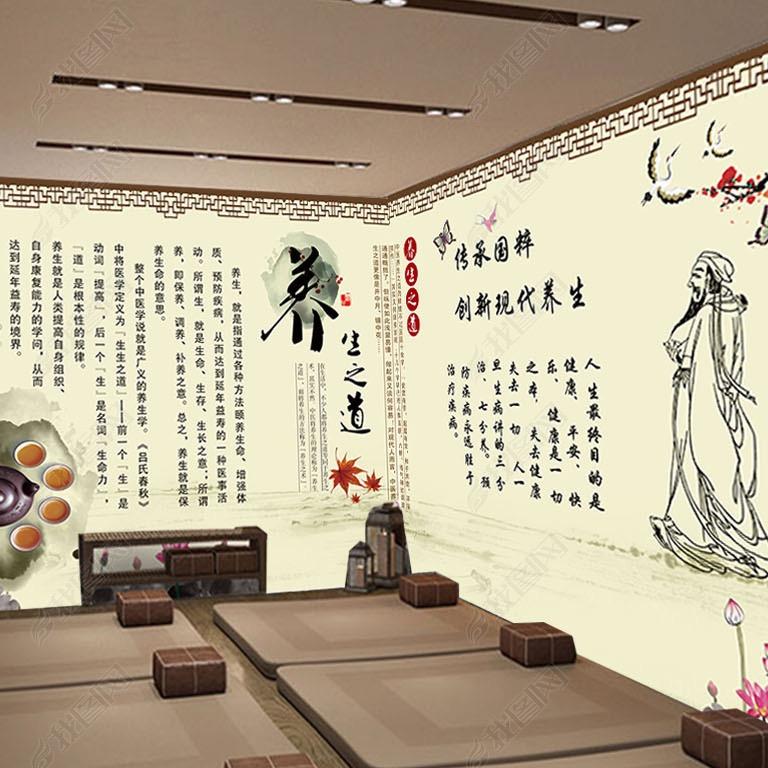 养生之道
养生，就是指通过各种方法颐养生命、增强体
质、预防疾病，从而达到延年益寿的一种医事活
动。所谓生，就是生命、生存、生长之意；所谓
养，即保养、调养、补养之意。总之，养生就是保
养生命的意思。
整个中医学说就是广义的养生学。《吕氏春秋》
中将医学定义为“生生之道”——前一个“生”是
动词“提高”，后一个“生”是名词“生命力”，
“道”是根本性的规律。
养生就是人类提高自身组织、
自身康复能力的学问，从而
达到延年益寿的境界。
养生之道
传承国粹
创新现代养生
人生最终目的是
健康、平安、快
乐，健康是一切
之本，失去健康
失去一切 人一
旦生病讲的三分
治、七分养。预
防疾病永远胜于
治疗疾病。